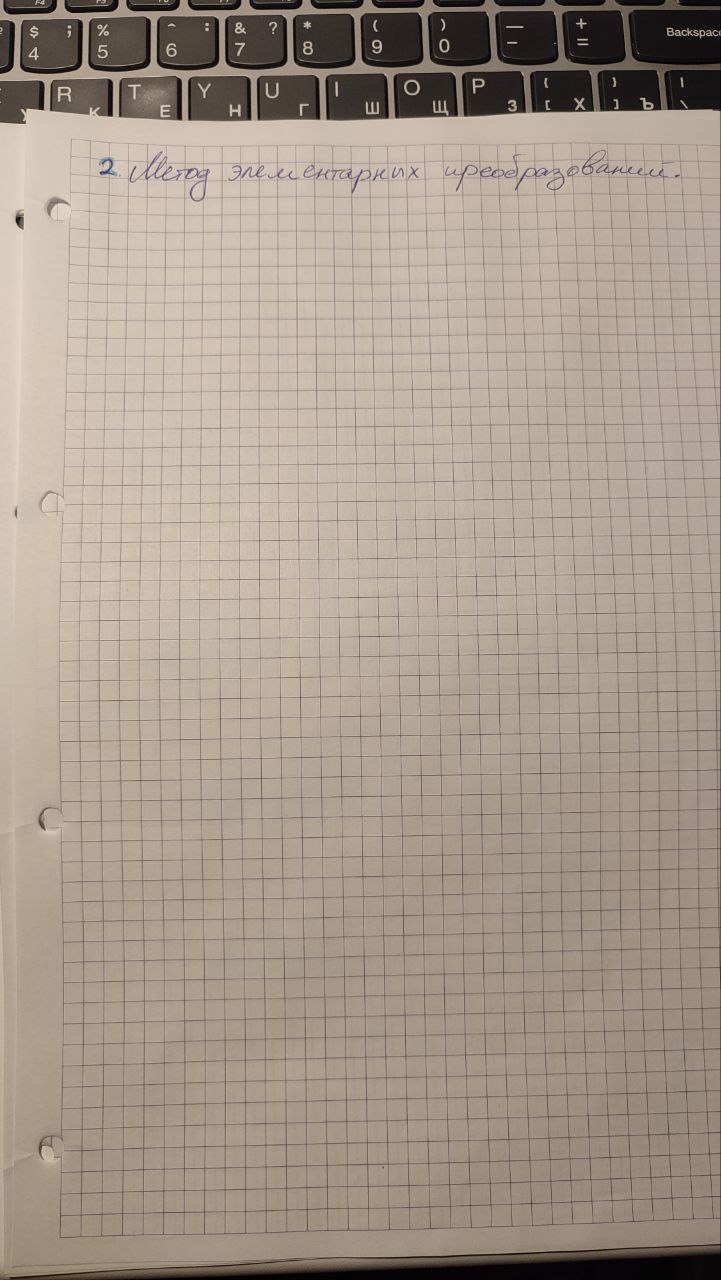 F4 F5 F6 F7
$ ; 4 % 5 ^ : 6 & ? 7 * 8 ( 9 ) 0 — - + = Backspace
R К T Е Y Н U Г I Ш O Щ P З { [ Х } ] Ъ | \
2. Метод элементарных преобразований.